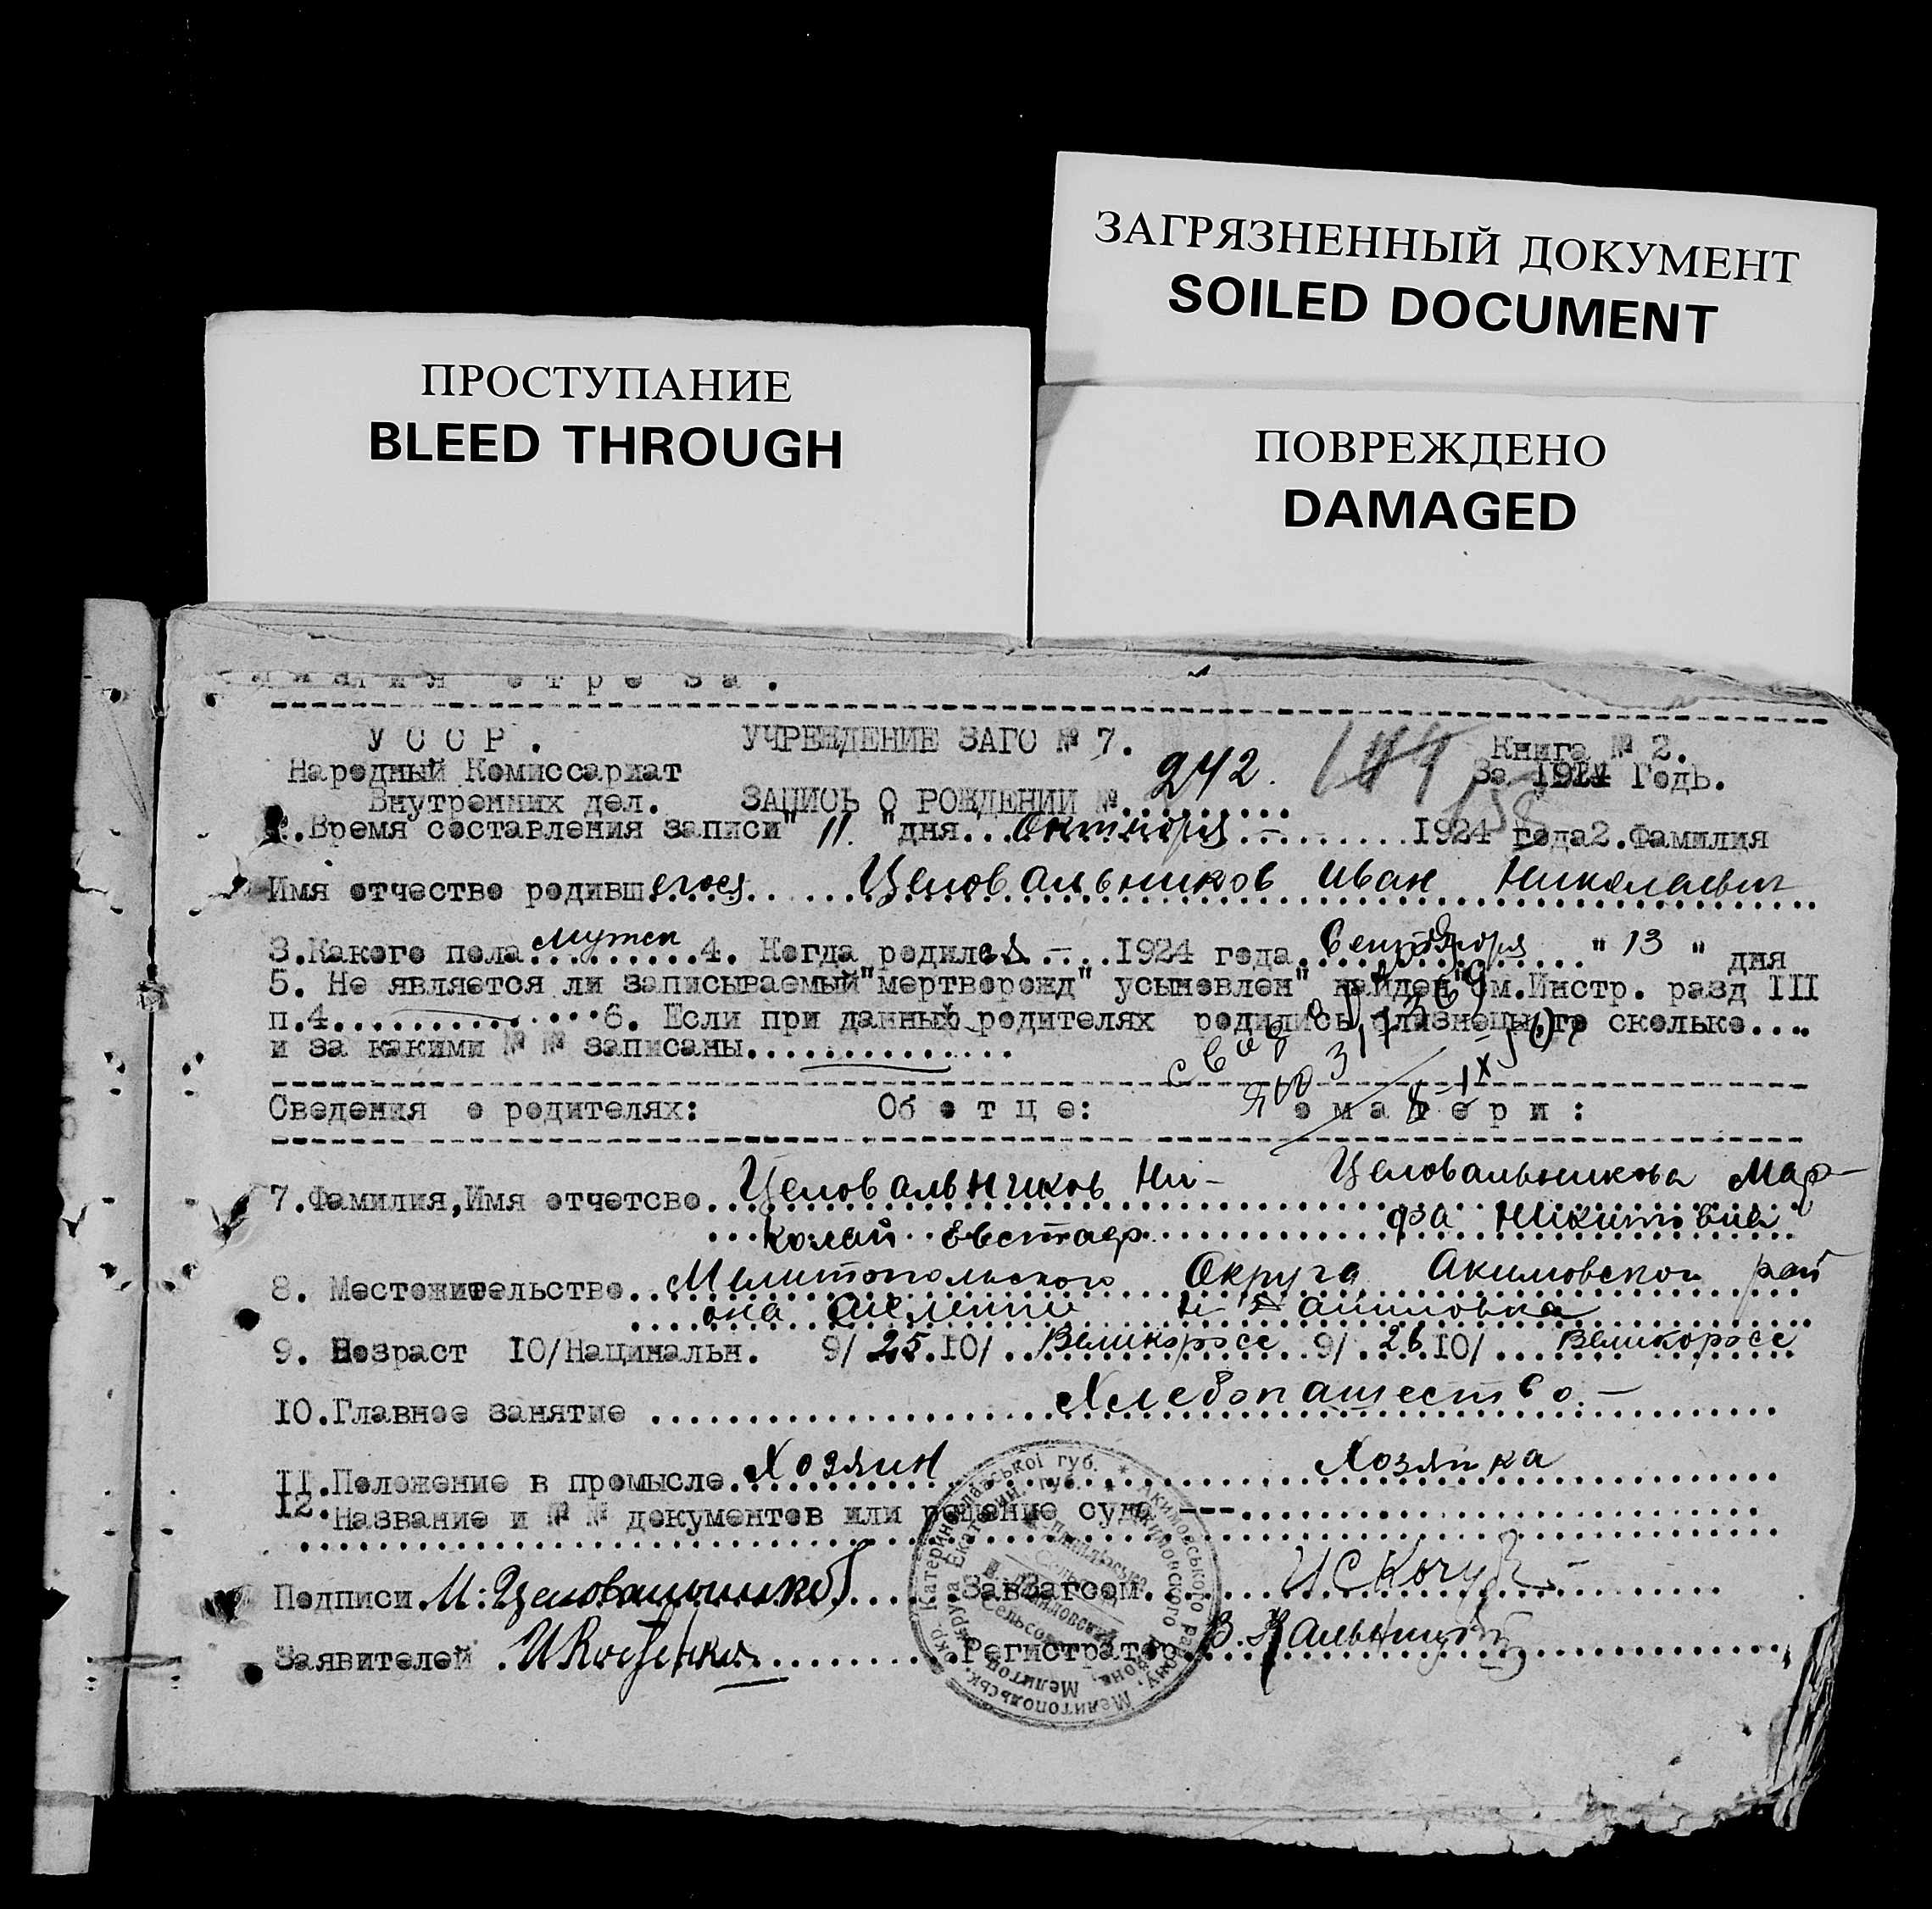 ЗАГРЯЗНЕННЫЙ ДОКУМЕНТ
SOILED DOCUMENT
ПРОСТУПАНИЕ
BLEED THROUGH
ПОВРЕЖДЕНО
DAMAGED
УССР. УЧРЕЖДЕНИЕ ЗАГС № 7. Книга № 2.
Народный Комиссариат За 1924 Годь.
Внутренних дел. ЗАПИСЬ О РОЖДЕНИИ № 242.
1.Время составления записи" 11. "дня...Октября - ........1924 года2.Фамилия
Имя отчество родившегося.....Целовальников Иван Николаевич
3.Какого пола мужск 4. Когда родился - ...1924 года Сентября " 13 " дня
5. Не является ли записываемый"мертворожд" усыновлен" найден"См.Инстр. разд III
п.4..............6. Если при данных родителях родились близнецы,то сколько....
и за какими № № записаны..............
Сведения о родителях: Об отце: о матери:
7.Фамилия,Имя отчетсво..Целовальников Ни- Целовальникова Мар-
колай Евстаф. фа Никитовна
8. Местожительство..Мелитопольского Округа Акимовского рай
она
9. Возраст 10/Нацинальн. 9/ 25.10/ ..Великоросс 9/ 26 10/ Великоросс
10.Главное занятие Хлебопашество.-
11.Положение в промысле.Хозяин Хозяйка
12.Название и № № документов или решение суда ---
Подписи.М:Целовальников ЗавЗагсом.
Заявителей . Регистратор